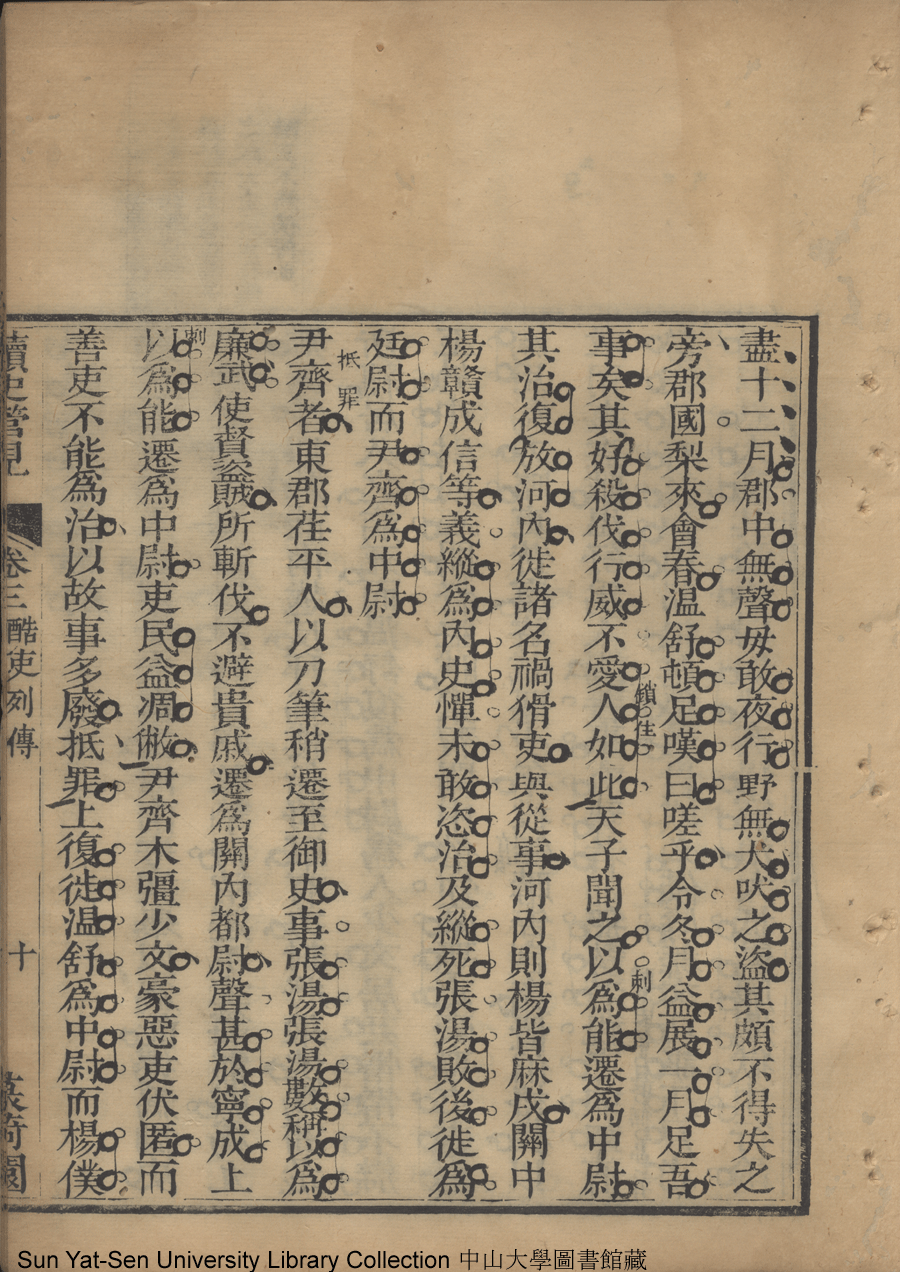 盡十二月郡中無聲毋敢夜行野無犬吠之盜其頗不得失之
旁郡國梨來會春温舒頓足嘆曰嗟乎令冬月益展一月足吾
事矣其好殺伐行威不愛人如此天子聞之以為能遷為中尉
鎖住
刺
其治復放河內徙諸名禍猾吏與從事河內則楊皆麻戊關中
楊贛成信等義縱為內史憚未敢恣治及縱死張湯敗後徙為
廷尉而尹齊為中尉
抵罪
尹齊者東郡茌平人以刀筆稍遷至御史事張湯張湯數稱以為
廉武使督盜賊所斬伐不避貴戚遷為關內都尉聲甚於寧成上
刺
以為能遷為中尉吏民益凋敝尹齊木彊少文豪惡吏伏匿而
善吏不能為治以故事多廢抵罪上復徙温舒為中尉而楊僕
讀史管見
卷三
酷吏列傳
十
Sun Yat-Sen University Library Collection 中山大學圖書館藏